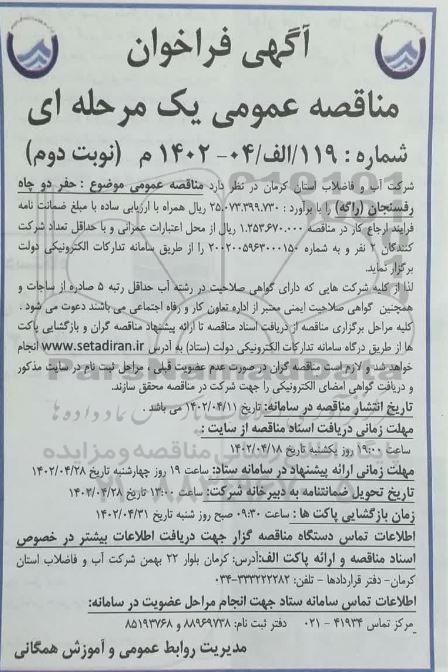 آگهی فراخوان
مناقصه عمومی یک مرحله ای
شماره : ۱۱۹/الف/۰۴- ۱۴۰۲ م (نوبت دوم)
شرکت آب و فاضلاب استان کرمان در نظر دارد مناقصه عمومی موضوع : حفر دو چاه
رفسنجان (راگه) را با برآورد : ۲۵.۰۷۳.۳۹۹.۷۳۰ ریال همراه با ارزیابی ساده با مبلغ ضمانت نامه
فرایند ارجاع کار در مناقصه ۱.۲۵۳.۶۷۰.۰۰۰ ریال از محل اعتبارات عمرانی و با حداقل تعداد شرکت
کنندگان ۲ نفر و به شماره ۲۰۰۲۰۰۵۹۶۳۰۰۰۱۵۰ را از طریق سامانه تدارکات الکترونیکی دولت
برگزار نماید.
لذا از کلیه شرکت هایی که دارای گواهی صلاحیت در رشته آب حداقل رتبه ۵ صادره از ساجات و
همچنین گواهی صلاحیت ایمنی معتبر از اداره تعاون کار و رفاه اجتماعی می باشند دعوت می شود .
کلیه مراحل برگزاری مناقصه از دریافت اسناد مناقصه تا ارائه پیشنهاد مناقصه گران و بازگشایی پاکت
ها از طریق درگاه سامانه تدارکات الکترونیکی دولت (ستاد) به آدرس www.setadiran.ir انجام
خواهد شد و لازم است مناقصه گران در صورت عدم عضویت قبلی ، مراحل ثبت نام در سایت مذکور
و دریافت گواهی امضای الکترونیکی را جهت شرکت در مناقصه محقق سازند.
تاریخ انتشار مناقصه در سامانه: تاریخ ۱۴۰۲/۰۴/۱۱ می باشد .
مهلت زمانی دریافت اسناد مناقصه از سایت :
ساعت ۱۹:۰۰ روز یکشنبه تاریخ ۱۴۰۲/۰۴/۱۸
مهلت زمانی ارائه پیشنهاد در سامانه ستاد: ساعت ۱۹ روز چهارشنبه تاریخ ۱۴۰۲/۰۴/۲۸
تاریخ تحویل ضمانتنامه به دبیرخانه شرکت: ساعت ۱۳:۰۰ تاریخ ۱۴۰۲/۰۴/۲۸
زمان بازگشایی پاکت ها : ساعت ۰۹:۳۰ صبح روز شنبه تاریخ ۱۴۰۲/۰۴/۳۱
اطلاعات تماس دستگاه مناقصه گزار جهت دریافت اطلاعات بیشتر در خصوص
اسناد مناقصه و ارائه پاکت الف:آدرس: کرمان بلوار ۲۲ بهمن شرکت آب و فاضلاب استان
کرمان- دفتر قراردادها - تلفن: ۰۳۴-۳۳۲۲۲۲۸۲
اطلاعات تماس سامانه ستاد جهت انجام مراحل عضویت در سامانه:
مرکز تماس ۴۱۹۳۴ - ۰۲۱ دفتر ثبت نام: ۸۸۹۶۹۷۳۸ و ۸۵۱۹۳۷۶۸
مدیریت روابط عمومی و آموزش همگانی